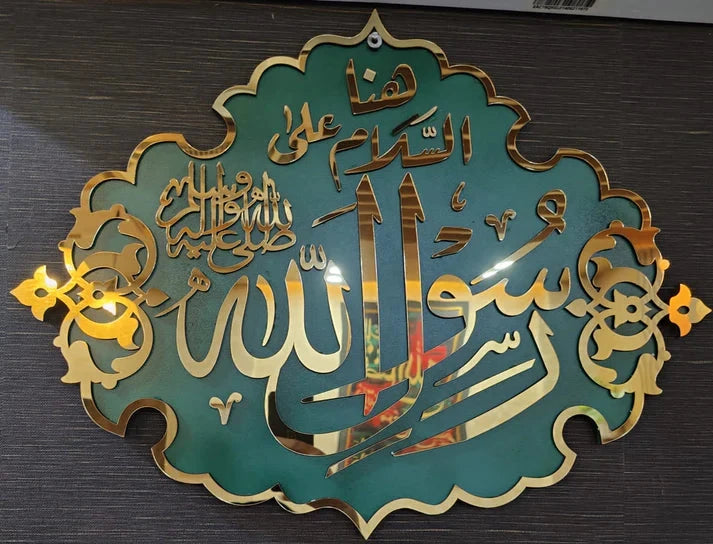 هنا
السلام على
رسول الله
صلى الله عليه وآله وسلم